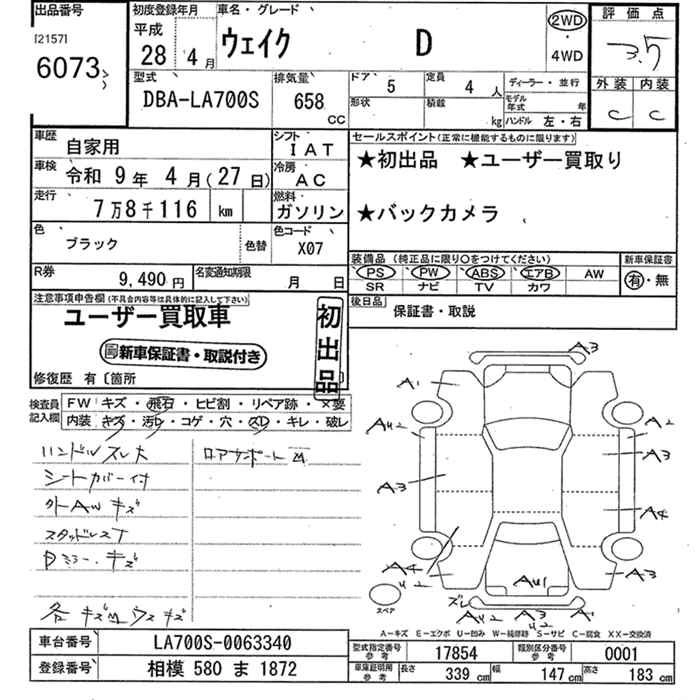 出品番号
[2157]
6073
初度登録年月
平成
28年 4月
車名・グレード
ウェイク D
2WD
・
4WD
評価点
3.5
外装 内装
C C
型式
DBA-LA700S
排気量
658
CC
ドア 5
定員 4人
形状
積載 kg
ディーラー・並行
モデル年式 年
ハンドル 左・右
車歴
自家用
シフト
IAT
車検
令和 9年 4月(27日)
冷房
AC
走行
7万8千116 km
燃料
ガソリン
色
ブラック
色替
色コード
X07
R券
9,490円
名変通知期限
月 日
セールスポイント(正常に機能するものに限ります)
★初出品 ★ユーザー買取り
★バックカメラ
装備品 (純正品に限り○をつけてください)
PS PW ABS エアB AW
SR ナビ TV カワ
新車保証書
有・無
後日品
保証書・取説
注意事項申告欄(不具合内容等は具体的に記入して下さい)
ユーザー買取車
新車保証書・取説付き
初出品
修復歴 有〔箇所
検査員記入欄
FW キズ・飛石・ヒビ割・リペア跡・×要
内装 キズ・汚レ・コゲ・穴・スレ・キレ・破レ
ハンドルスレ大
シートカバー付
外AWキズ
スタッドレスT
Dミラーキズ
ロアサポート凹
A3
A1
AU2
A2
A3
A3
A3
A4
A4
U2
A3
AU1
ズレ
AU2
A3
U2
A1
スペア
A―キズ E―エクボ U―凹み W―補修跡 S―サビ C―腐食 XX―交換済
車台番号
LA700S-0063340
登録番号
相模 580 ま 1872
型式指定番号
参考
17854
類別区分番号
参考
0001
車庫証明用
参考
長さ 339 cm
幅 147 cm
高さ 183 cm